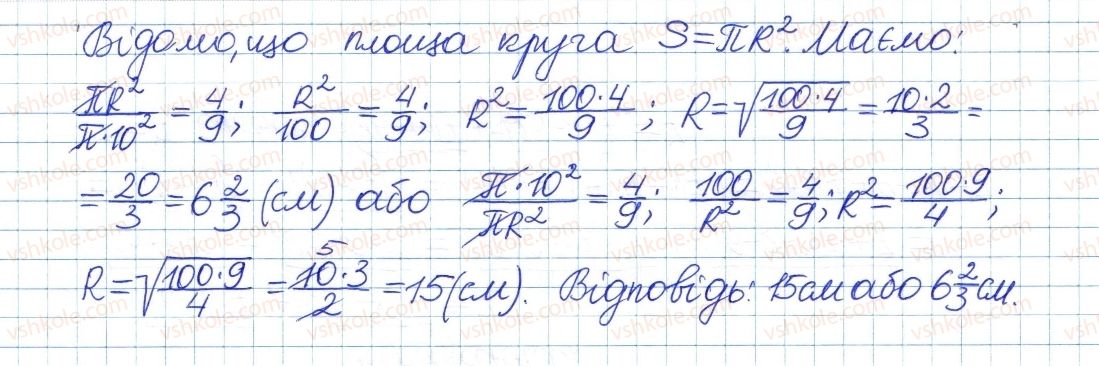 Відомо, що площа круга S=πR². Маємо:
πR²/π·10² = 4/9; R²/100 = 4/9; R² = 100·4/9; R = √(100·4/9) = 10·2/3 =
= 20/3 = 6 2/3 (см) або π·10²/πR² = 4/9; 100/R² = 4/9; R² = 100·9/4;
R = √(100·9/4) = 10·3/2 = 15 (см). Відповідь: 15 см або 6 2/3 см.